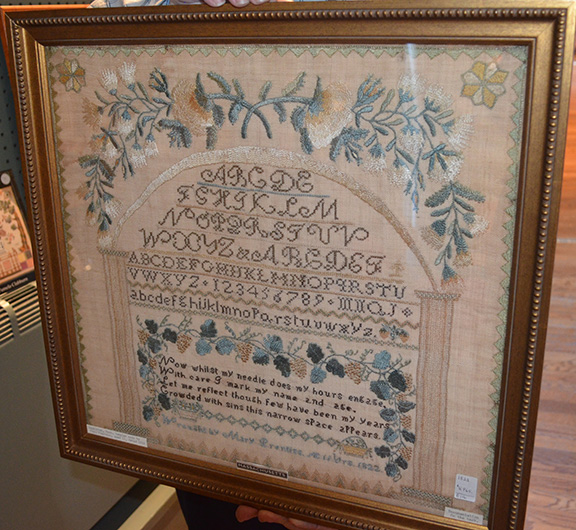 ABCDE
FGHIKLM
NOPQRSTUV
WXYZ&ABCDEF
ABCDEFGHIJKLMNOPQRSTU
VWXYZ · 123456789 ·
abcdefghijklmnopqrstuvwxyz
Now whilst my needle does my hours engage
With care I mark my name and age.
Let me reflect though few have been my years
Crowded with sins this narrow space appears.
Wrought by Mary Æ 1822
MASSACHUSETTS
1822